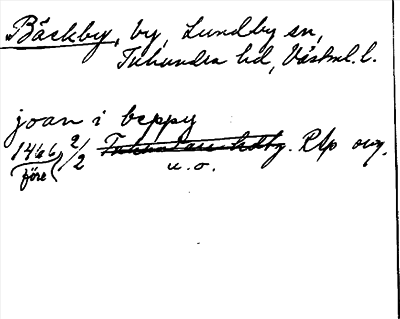 Bäckby, by, Lundby sn,
Tuhundra hd, Västml. l.
joan i beppy
1466 2/2 RAp orig.
före u. o.